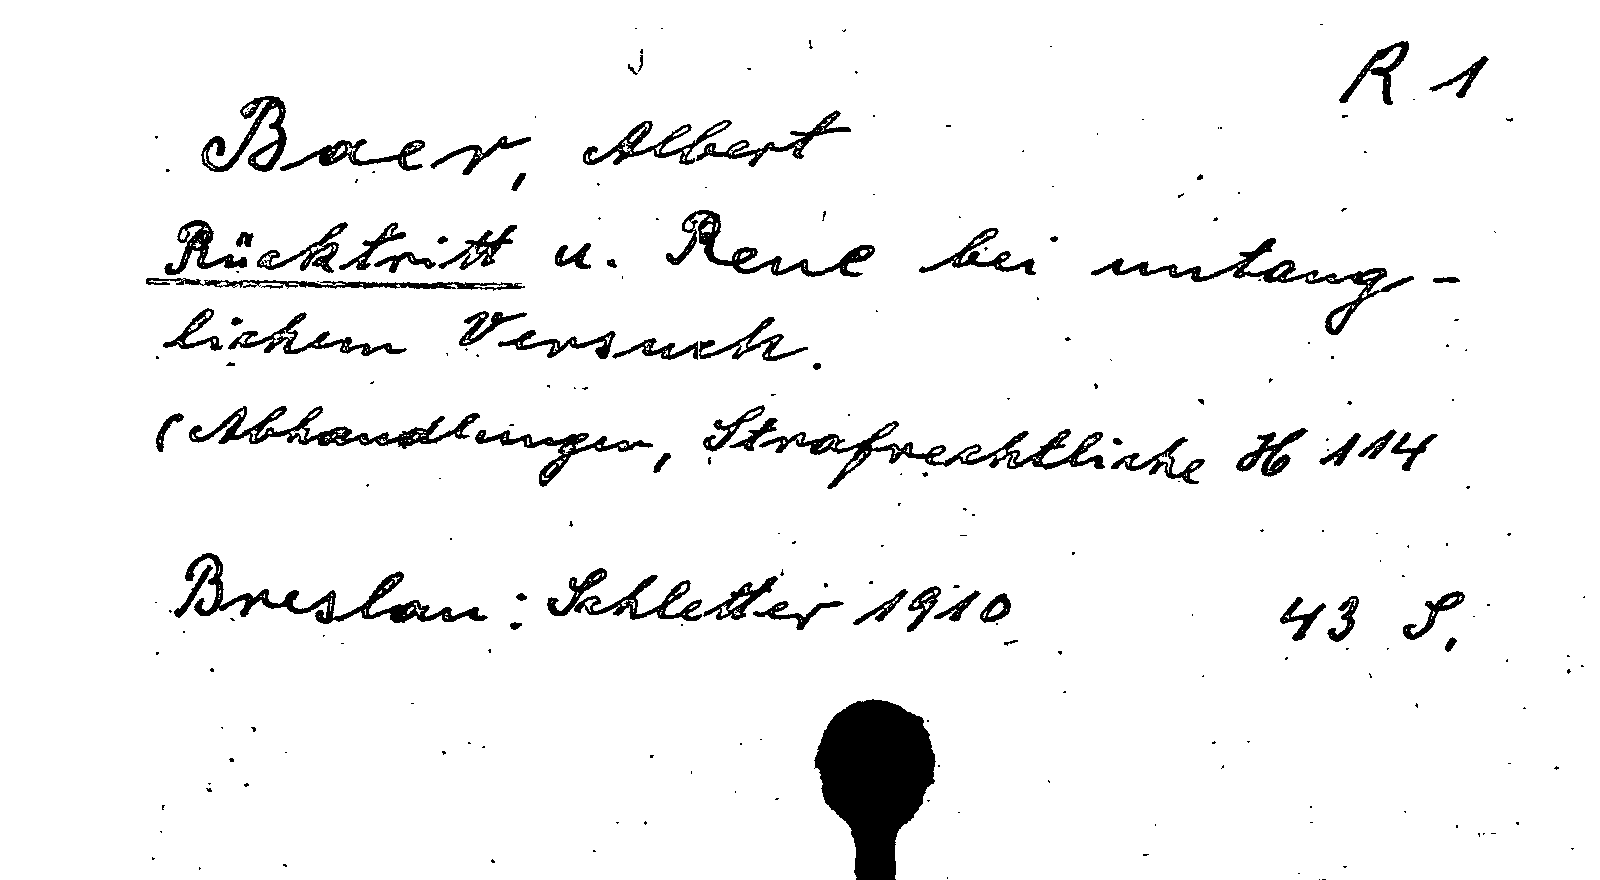 R 1
Baer, Albert
Rücktritt u. Reue bei untaug-
lichem Versuch.
(Abhandlungen, Strafrechtliche H 114
Breslau: Schletter 1910 43 S.